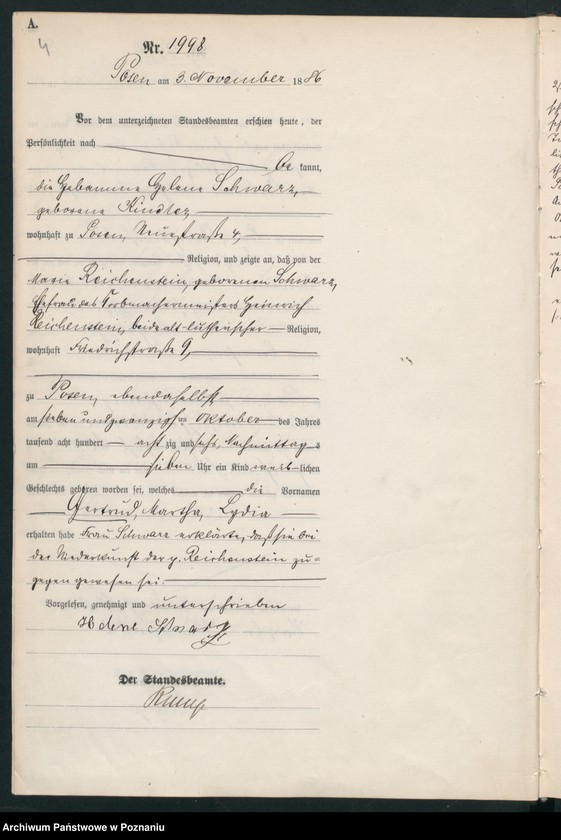 A.
4
Nr. 1998
Posen am 3. November 1886
Vor dem unterzeichneten Standesbeamten erschien heute, der
Persönlichkeit nach
be kannt,
die Hebamme Helene Schwarz,
geborene Kindler,
wohnhaft zu Posen, Neuestraße 4,
Religion, und zeigte an, daß von der
Marie Reichenstein, geborenen Schwarz,
Ehefrau des Korbmachermeisters Heinrich
Reichenstein, beide alt-lutherischer Religion,
wohnhaft Friedrichstraße 9,
zu Posen, ebendaselbst
am sieben und zwanzigsten Oktober des Jahres
tausend acht hundert acht zig und sechs, Nachmittags
um sieben Uhr ein Kind weib lichen
Geschlechts geboren worden sei, welches die Vornamen
Gertrud, Martha, Lydia
erhalten habe Frau Schwarz erklärte, daß sie bei
der Niederkunft der p. Reichenstein zu=
gegen gewesen sei.
Vorgelesen, genehmigt und unterschrieben
Helene
Der Standesbeamte.
Archiwum Państwowe w Poznaniu